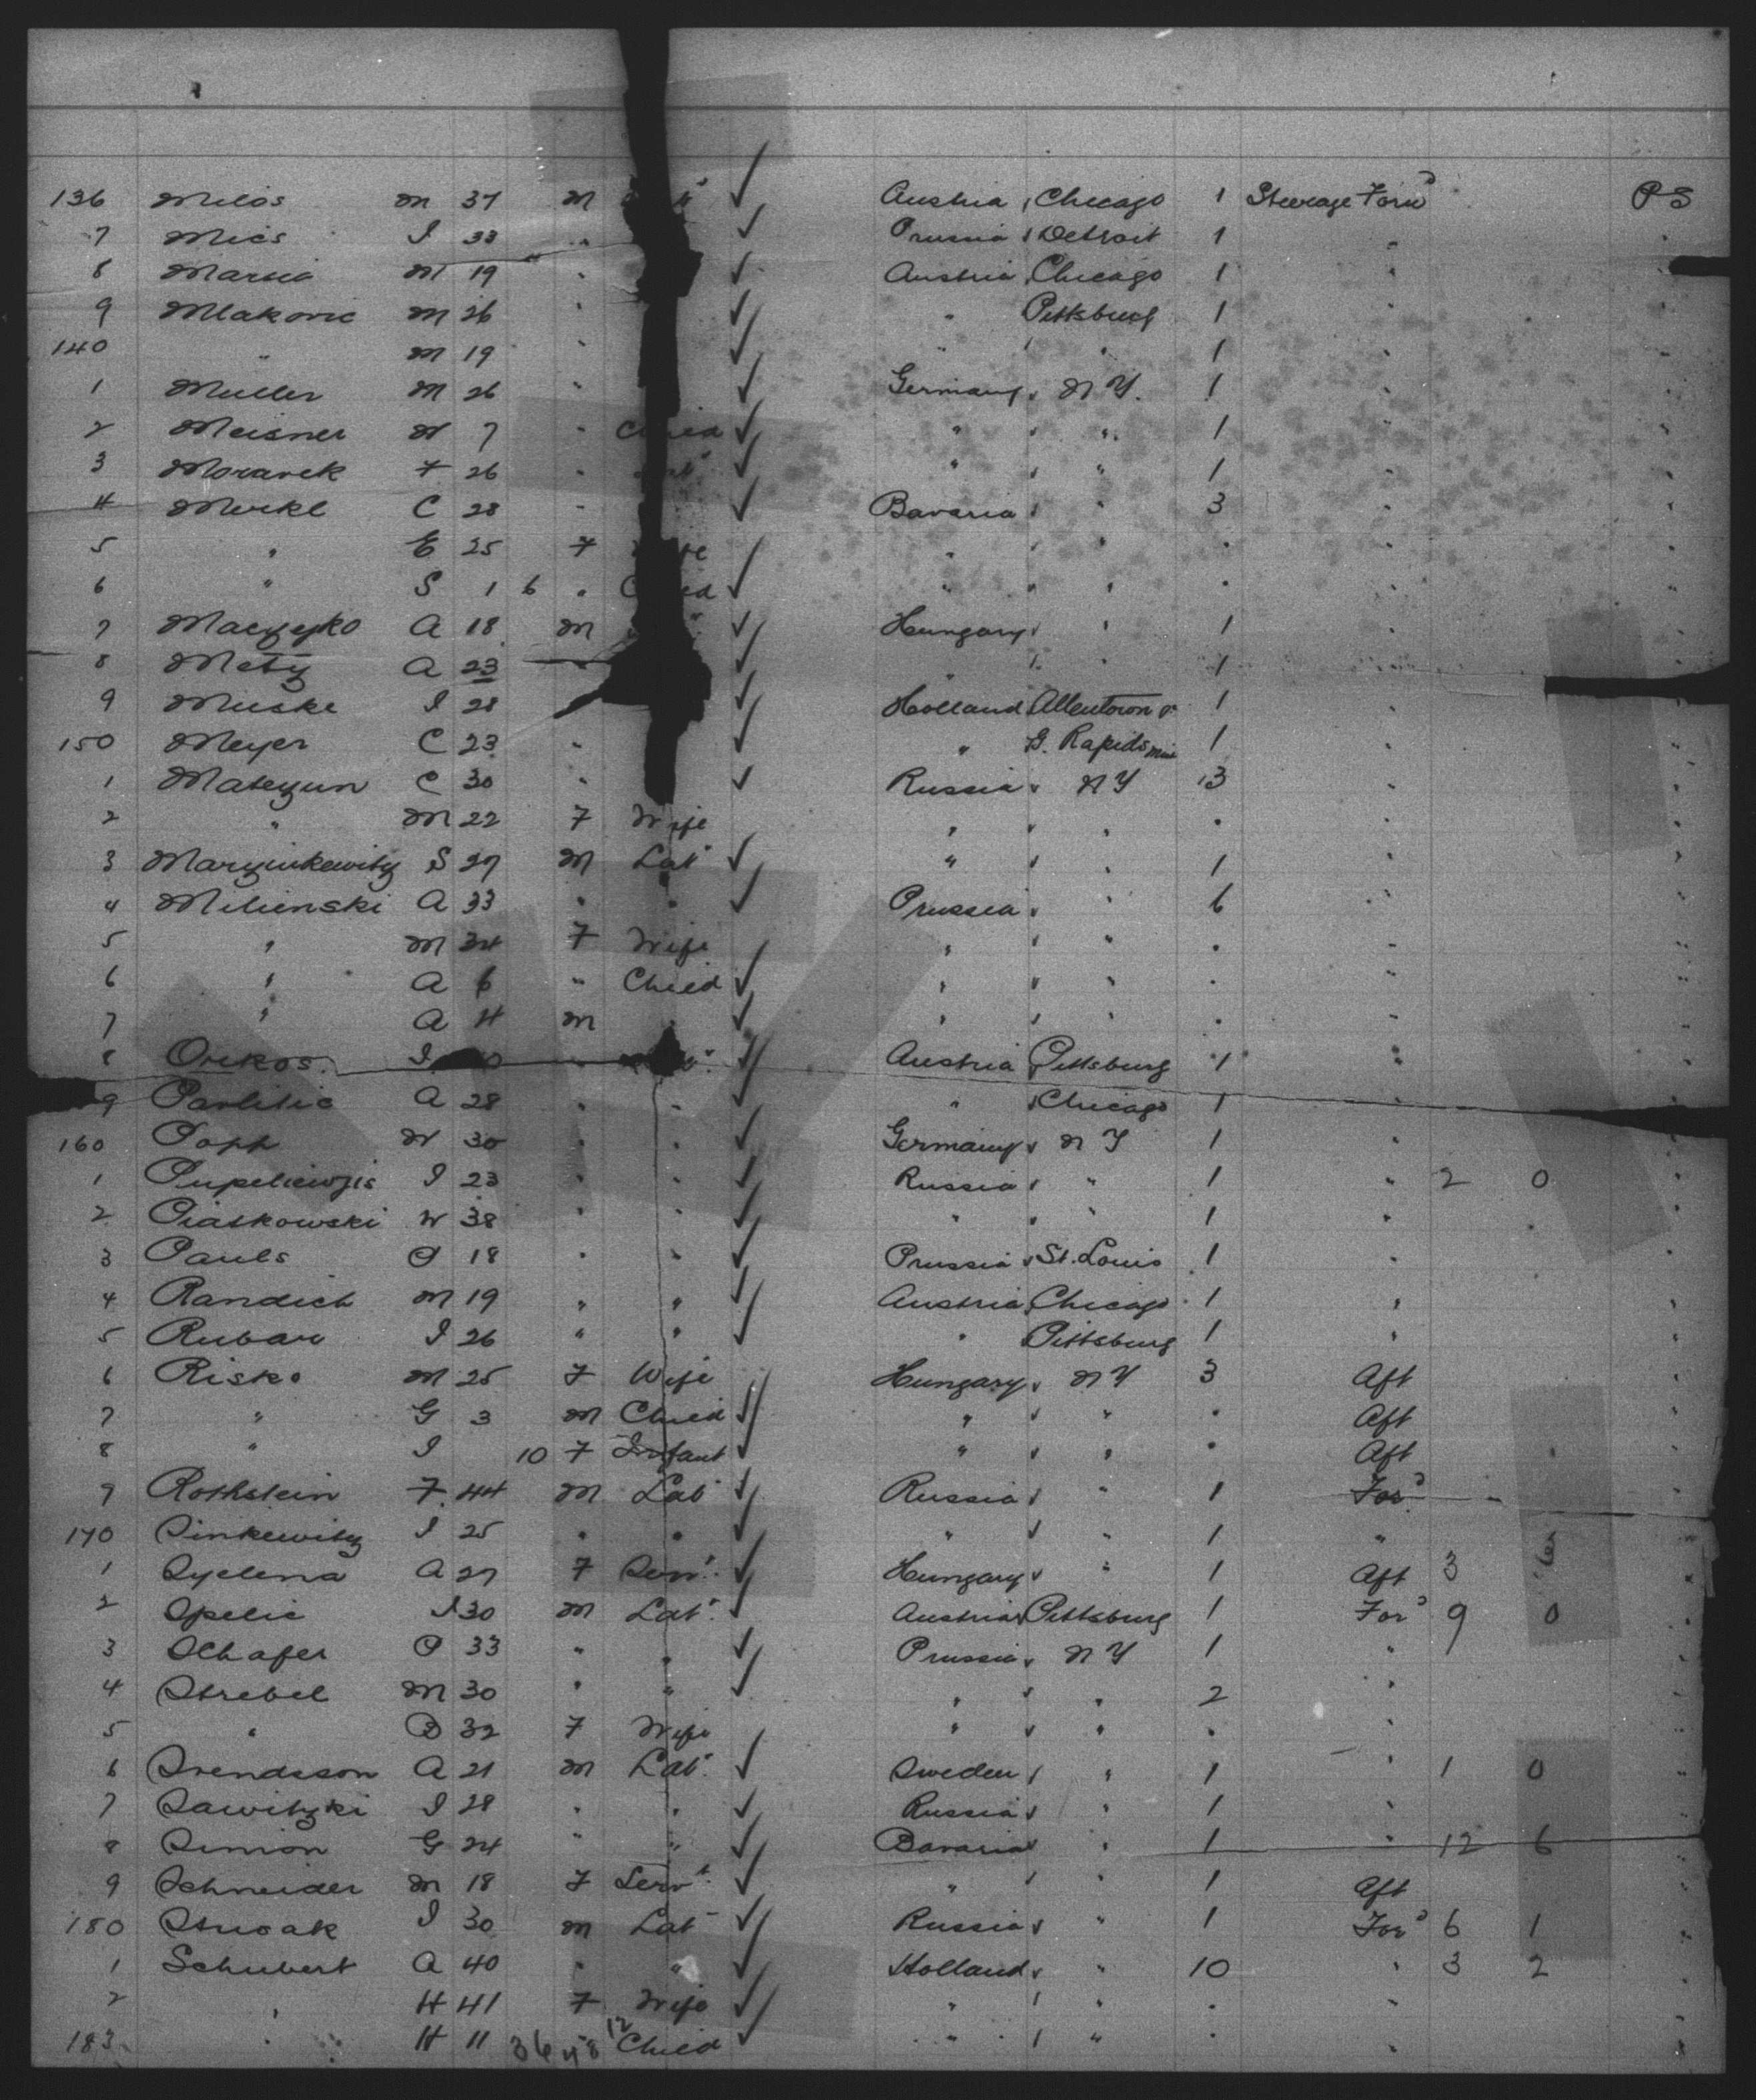 136 Milos M 37 M " Austria Chicago 1 Steerage Forwd PS
7 Mics I 33 " Prussia Detroit 1 "
8 Marsia M 19 " Austria Chicago 1 "
9 Mlakovic M 26 " " Pittsburg 1 "
140 " M 19 " " " 1 "
1 Muller M 26 " Germany N Y. 1 "
2 Meisner W 7 " Child " " 1 "
3 Moravek F 26 " Lab " " 1 "
4 Merkl C 28 " Bavaria " 3 "
5 " E 25 F Wife " " "
6 " S 1 6 " Child " " "
7 A 18 M " Hungary " 1 "
8 Metz A 23 " " 1
9 Muske I 28 Holland Allentown 1 "
150 Meyer C 23 " " G. Rapids Mich 1 "
1 Mateyun C 30 " Russia N Y 13 "
2 " M 22 F Wife " " " "
3 S 27 M Lab " " 1 "
4 Milienski A 33 " " Prussia " 6 "
5 " M 34 F Wife " " " "
6 " A 6 " Child " " " "
7 " A 4 M " " " "
8 Orekos I " Lab Austria Pittsburg 1 "
9 Pavlitic A 28 " " " Chicago 1 "
160 Popp W 30 " " Germany N Y 1 "
1 I 23 " " Russia " 1 " 2 0
2 Piatkowski W 38 " " " " 1 "
3 Pauls P 18 " " Prussia St. Louis 1 "
4 Randich M 19 " " Austria Chicago 1 "
5 Rubar I 26 " " " Pittsburg 1 "
6 Risko M 25 F Wife Hungary N Y 3 Aft
7 " G 3 M Child " " " Aft
8 " I 10 F Infant " " " Aft
9 Rothstein F 44 M Lab Russia " 1 Ford
170 Sinkewitz I 25 " " " " 1 "
1 Syelena A 27 F Servt. Hungary " 1 Aft 3 6
2 Spelic I 30 M Lab. Austria Pittsburg 1 Ford 9 0
3 Slhafer P 33 " " Prussia N Y 1 "
4 Strebel M 30 " " " " 2 "
5 " B 32 F Wife " " " "
6 Svendsson A 21 M Lab. Sweden " 1 " 1 0
7 Sawitzki I 28 " " Russia " 1 "
8 Simon G 24 " " Bavaria " 1 " 12 6
9 Schneider M 18 F Servt. " " 1 Aft
180 I 30 M Lab Russia " 1 Ford 6 1
1 Schubert A 40 " " Holland " 10 " 3 2
2 " H 41 F Wife " " " "
183 " H 11 36 48 12 Child " " " "